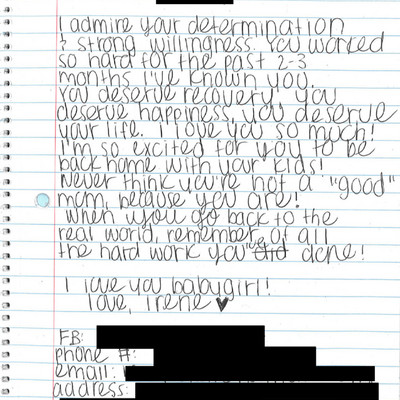 I admire your determination
& strong willingness. You worked
so hard for the past 2-3
months I've known you.
You deserve recovery, you
deserve happiness, you deserve
your life. I love you so much!
I'm so excited for you to be
back home with your kids!
Never think you're not a "good"
mom, because you are!
When you go back to the
real world, remember of all
the hard work you've did done!
I love you babygirl!
love, Irene ♥
FB:
phone #:
email:
address: